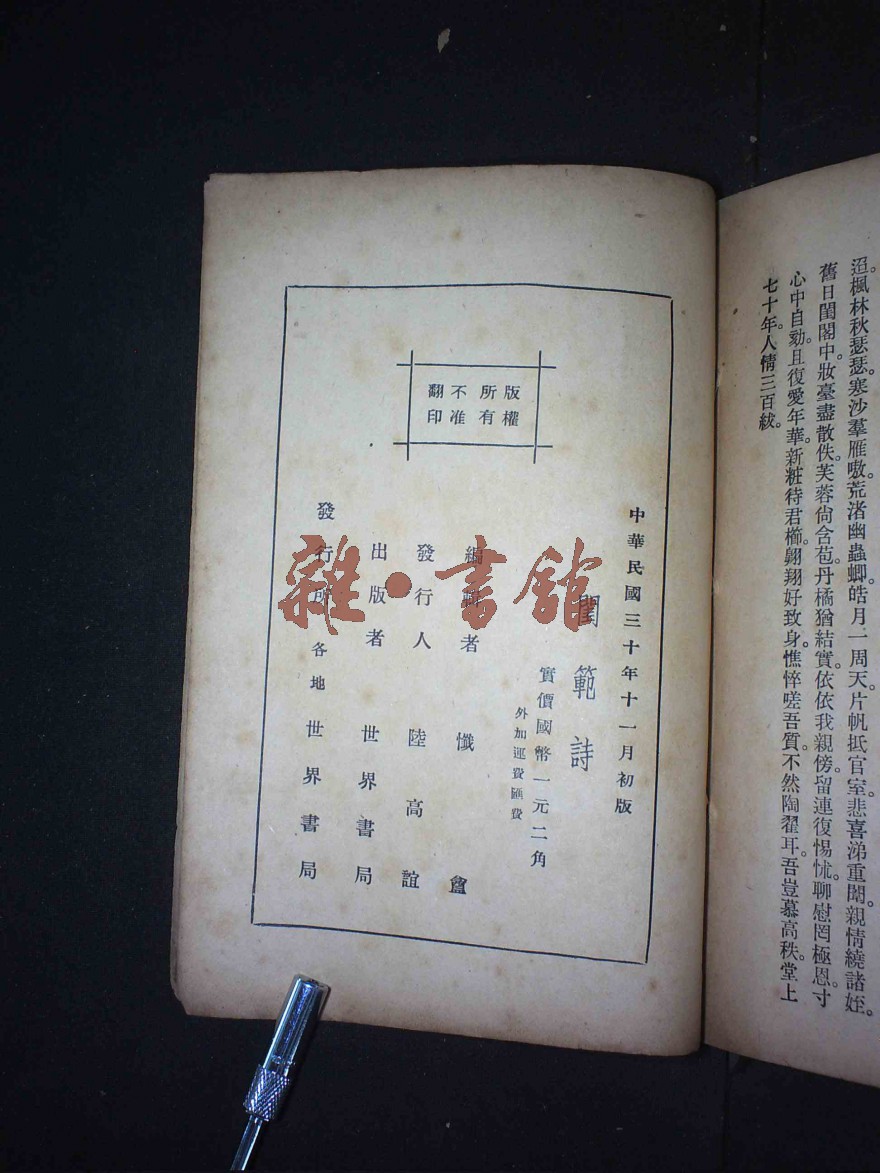 迢楓林秋瑟瑟。寒沙羣雁嗷。荒渚幽蟲唧。皓月一周天。片帆抵官室。悲喜涕重聞。親情繞諸姪。
舊日閨閣中。妝臺盡散佚。芙蓉尙含苞。丹橘猶結實。依依我親傍。留連復惕怵。聊慰罔極恩。寸
心中自劾。且復愛年華。新粧待君櫛。翺翔好致身。憔悴嗟吾質。不然陶翟耳。吾豈慕高秩。堂上
七十年。人情三百紱。
版權所有
不准翻印
中華民國三十年十一月初版
閨範詩
實價國幣一元二角
外加運費匯費
編輯者 懺盦
發行人 陸高誼
出版者 世界書局
發行所 各地世界書局
雜·書館